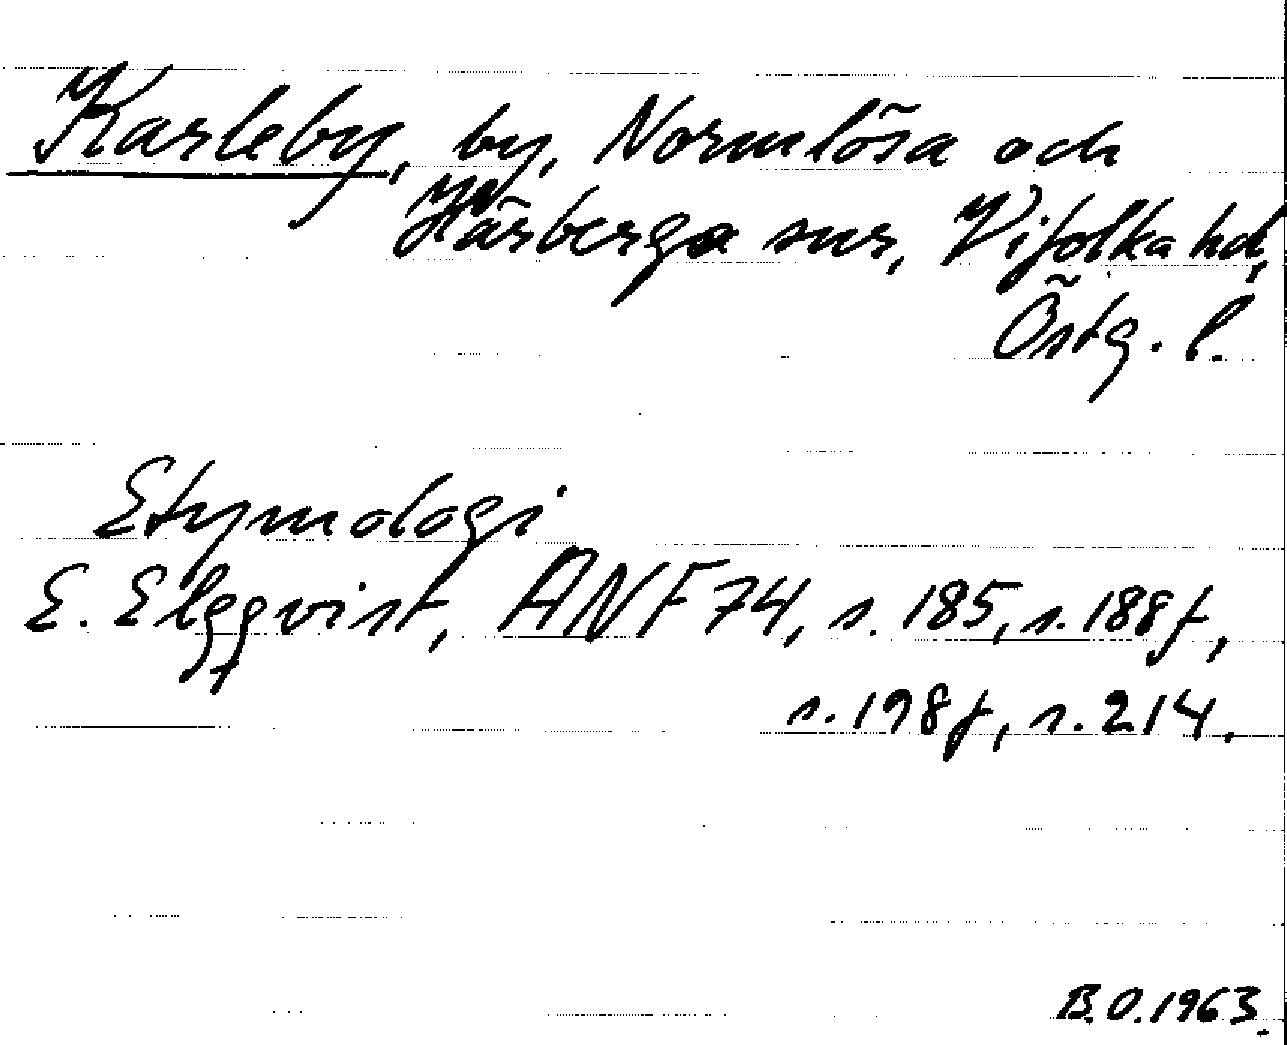 Karleby, by, Normlösa och
Härberga snr, Vifolka hd,
Östg. l.
Etymologi
E. Elgqvist, ANF 74, s. 185, s. 188f,
s. 198f, s. 214.
B.O. 1963.